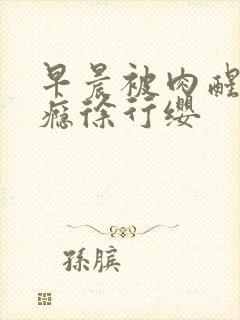 早晨被肉醒
瘾徐行缨
孫膑